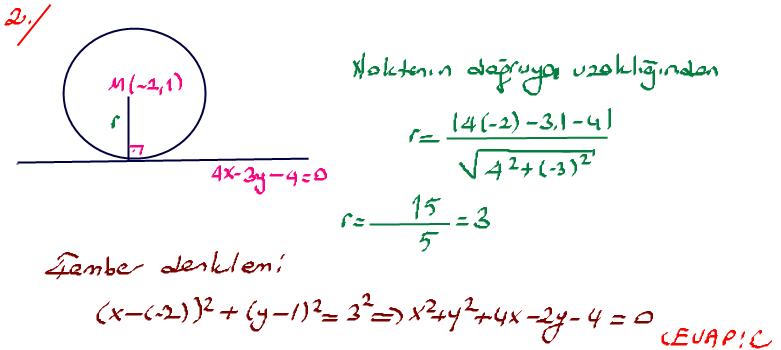 2./
M(-2,1)
r
4x-3y-4=0
Noktanın doğruya uzaklığından
r= |4(-2)-3.1-4| / √4²+(-3)²
r= 15/5 = 3
Çember denklemi
(x-(-2))²+(y-1)²=3²⇒x²+y²+4x-2y-4=0
CEVAP:C